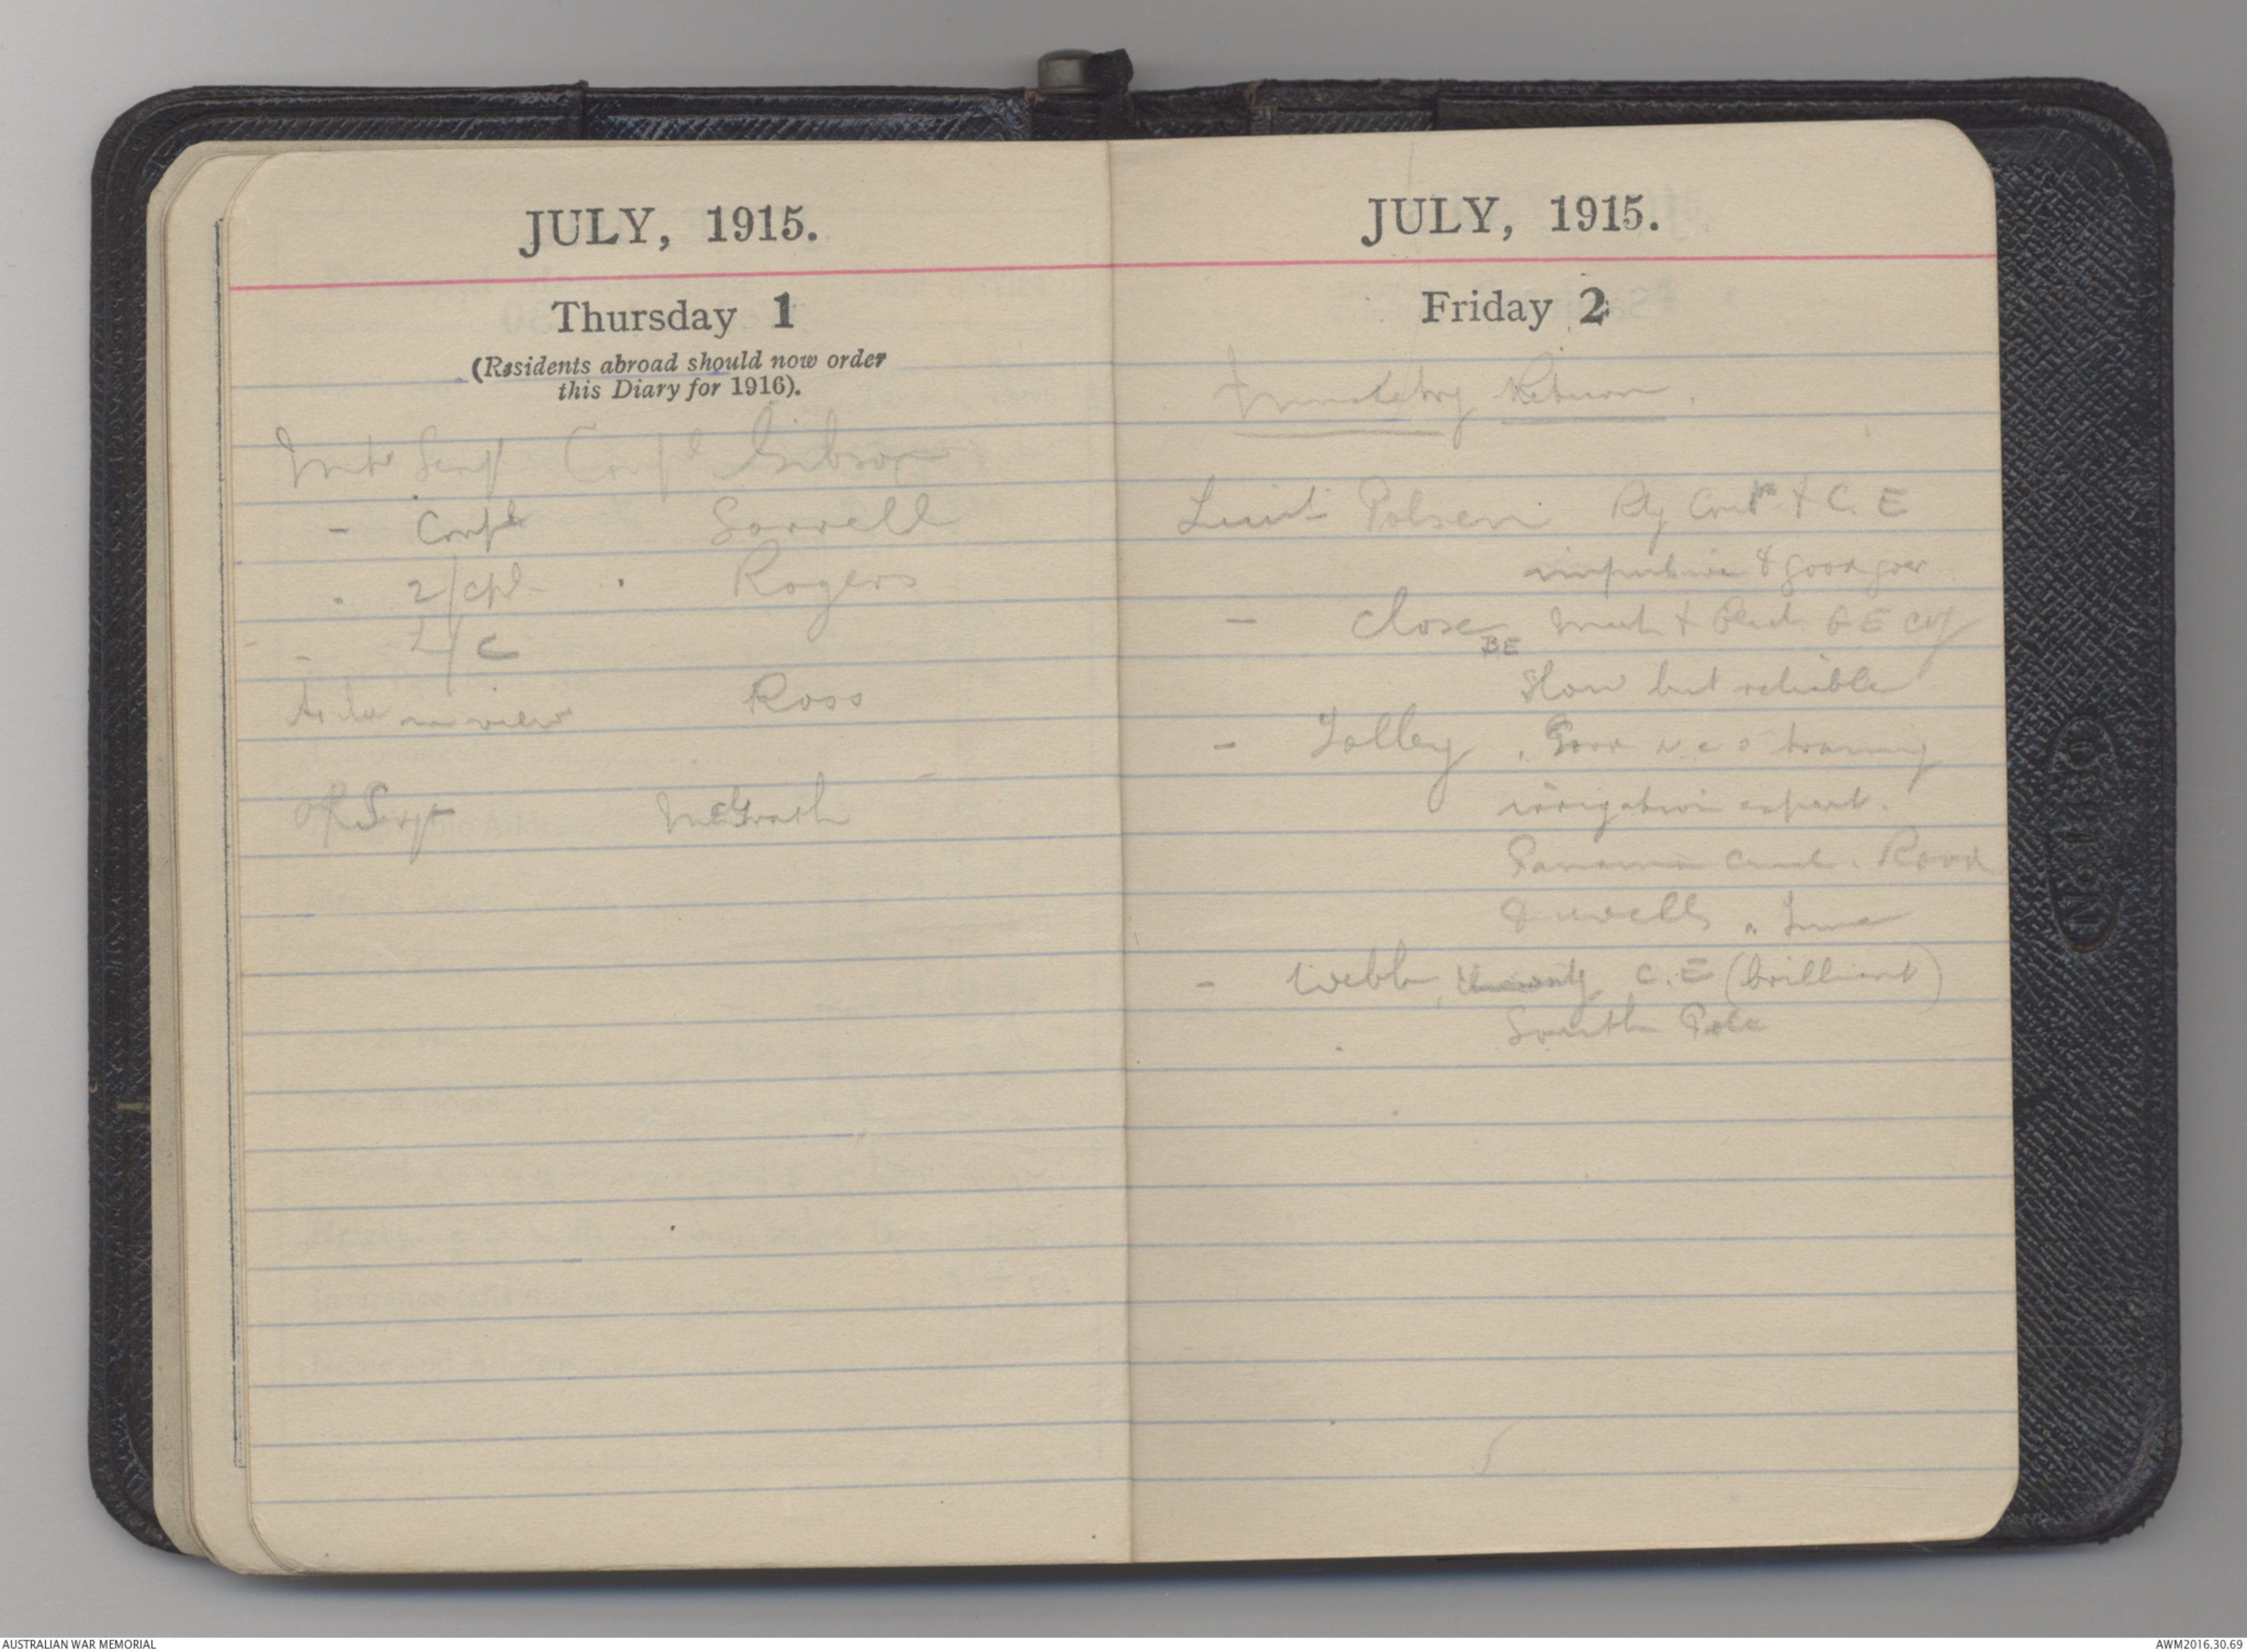 JULY, 1915.
Thursday 1
(Residents abroad should now order
this Diary for 1916).
Sergt Corpl Gibson
- Corpl Sorrell
- 2/Cpl . Rogers
- L/C
in view Ross
Sergt McGrath
JULY, 1915.
Friday 2
Return.
Lieut Polsen Rly & C. E
impulsive & good goer
- Close BE & CE Coy
Slow but reliable
- Tolley, Good N C O training
irrigation expert.
Panama Canal. Road
& wells
- Webb, C. E (brilliant)
South Pole
Nº I.BO
AUSTRALIAN WAR MEMORIAL
AWM2016.30.69